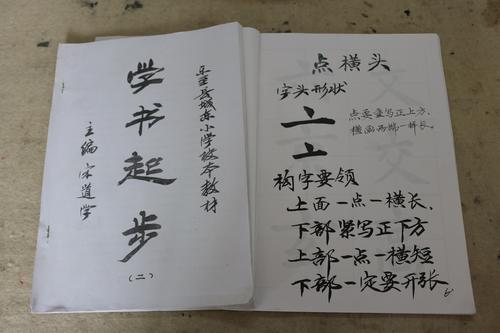 乐至县城东小学校本教材
学书起步
(二)
主编 宋道学
点横头
字头形状
点要重写正上方、
横画两端一样长。
亠
亠
构字要领
上面一点一横长、
下部紧写正下方
上部一点一横短
下部一定要开张